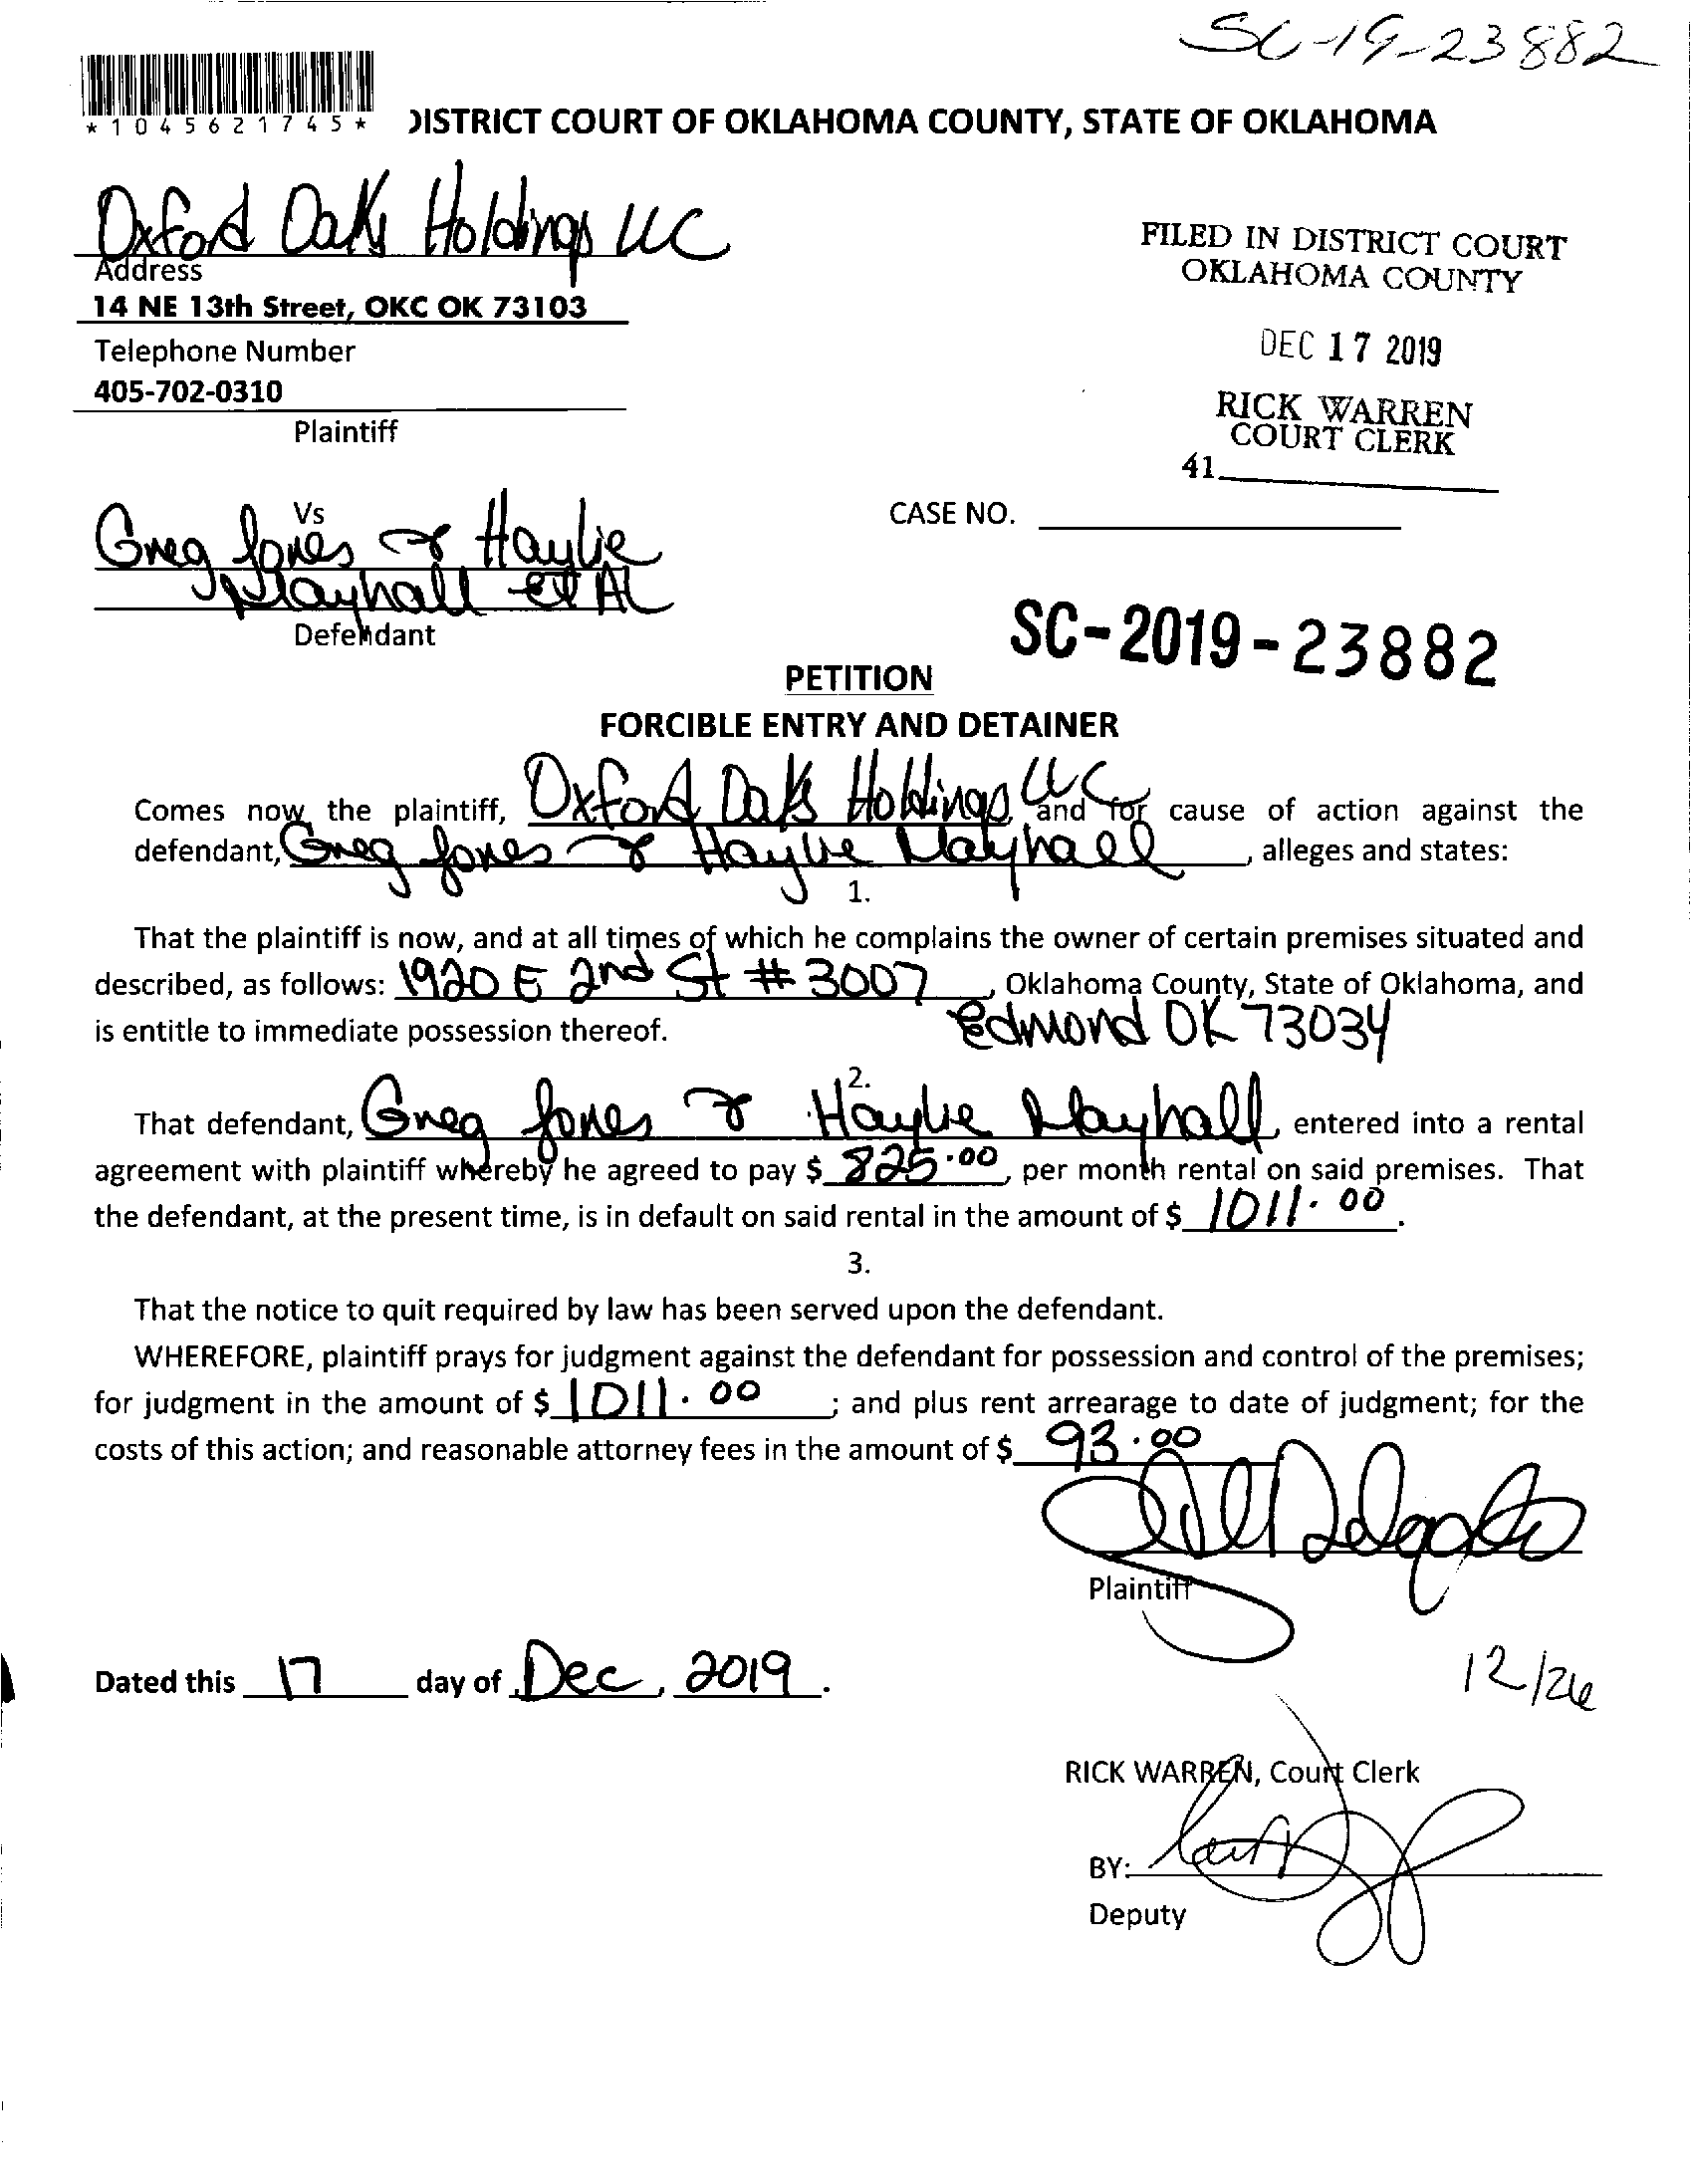 SC-19-23882
*1045621745*
DISTRICT COURT OF OKLAHOMA COUNTY, STATE OF OKLAHOMA
Oxford Oaks Holdings LLC
Address
14 NE 13th Street, OKC OK 73103
Telephone Number
405-702-0310
Plaintiff
FILED IN DISTRICT COURT
OKLAHOMA COUNTY
DEC 17 2019
RICK WARREN
COURT CLERK
41
Vs
Greg Jones & Haylie
Mayhall et Al
Defendant
CASE NO.
SC-2019-23882
PETITION
FORCIBLE ENTRY AND DETAINER
Comes now the plaintiff, Oxford Oaks Holdings LLC, and for cause of action against the
defendant, Greg Jones & Haylie Mayhall, alleges and states:
1.
That the plaintiff is now, and at all times of which he complains the owner of certain premises situated and
described, as follows: 1920 E 2nd St # 3007, Oklahoma County, State of Oklahoma, and
is entitle to immediate possession thereof. Edmond OK 73034
2.
That defendant, Greg Jones & Haylie Mayhall, entered into a rental
agreement with plaintiff whereby he agreed to pay $ 825.00, per month rental on said premises. That
the defendant, at the present time, is in default on said rental in the amount of $ 1011.00.
3.
That the notice to quit required by law has been served upon the defendant.
WHEREFORE, plaintiff prays for judgment against the defendant for possession and control of the premises;
for judgment in the amount of $ 1011.00; and plus rent arrearage to date of judgment; for the
costs of this action; and reasonable attorney fees in the amount of $ 93.00
Jill Delgado
Plaintiff
Dated this 17 day of Dec, 2019.
12/26
RICK WARREN, Court Clerk
BY:
Deputy